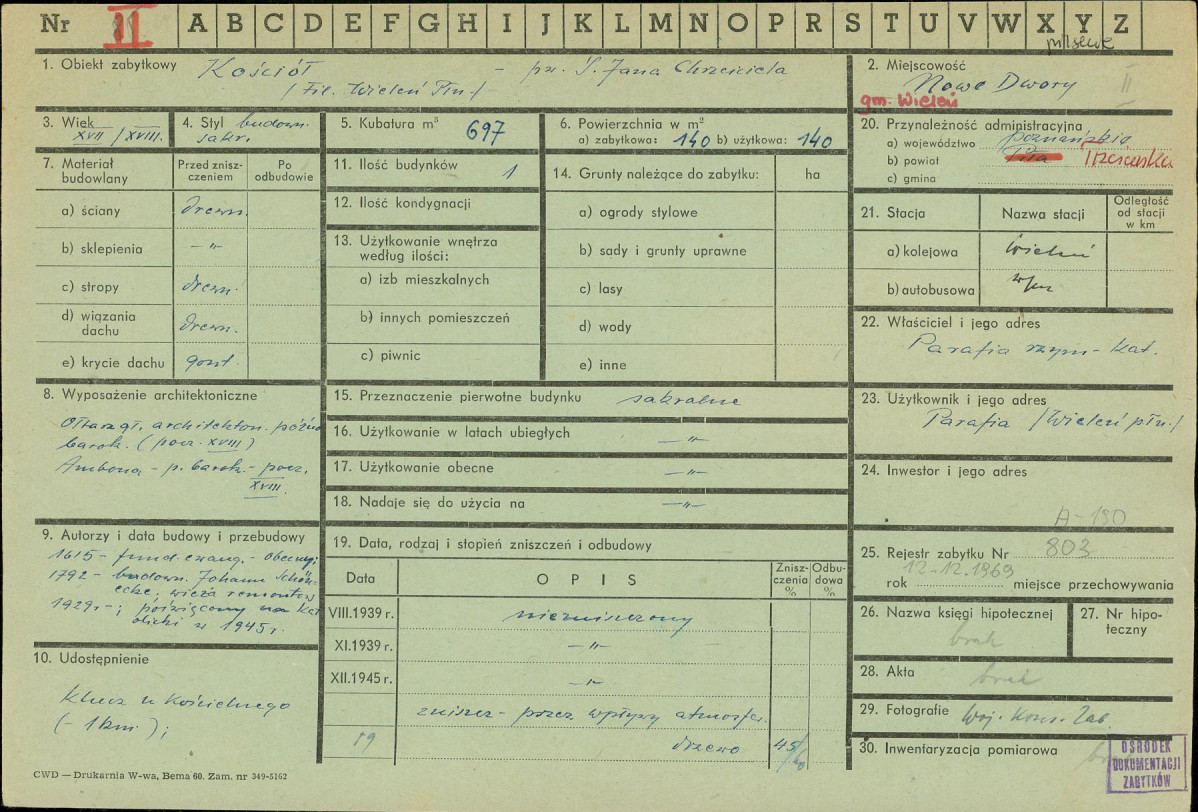 Nr II A B C D E F G H I J K L M N O P R S T U V W X Y Z
pilskie
1. Obiekt zabytkowy Kościół – pw. Ś. Jana Chrzciciela
(Fil. Wieleń Płn.)
2. Miejscowość
Nowe Dwory II
gm. Wieleń
3. Wiek
XVII/XVIII.
4. Styl budown.
sakr.
5. Kubatura m³
697
6. Powierzchnia w m²
a) zabytkowa: 140 b) użytkowa: 140
7. Materiał budowlany
Przed zniszczeniem
Po odbudowie
a) ściany drewn.
b) sklepienia –"–
c) stropy drewn.
d) wiązania dachu drewn.
e) krycie dachu gont.
8. Wyposażenie architektoniczne
Ołtarz gł. architekton. późno
barok. (pocz. XVIII)
Ambona – p. barok. – pocz.
XVIII.
9. Autorzy i data budowy i przebudowy
1615 – fund. ewang. – obecny;
1792 – budown. Johann Schön-
ecke; wieża remontow
1929 r –; poświęcony na kat
olicki w 1945 r.
10. Udostępnienie
Klucz u kościelnego
(– 1 km);
11. Ilość budynków 1
12. Ilość kondygnacji
13. Użytkowanie wnętrza
według ilości:
a) izb mieszkalnych
b) innych pomieszczeń
c) piwnic
14. Grunty należące do zabytku: ha
a) ogrody stylowe
b) sady i grunty uprawne
c) lasy
d) wody
e) inne
15. Przeznaczenie pierwotne budynku sakralne
16. Użytkowanie w latach ubiegłych –"–
17. Użytkowanie obecne –"–
18. Nadaje się do użycia na –"–
19. Data, rodzaj i stopień zniszczeń i odbudowy
Data OPIS Zniszczenia % Odbudowa %
VIII.1939 r. niezniszczony
XI.1939 r. –"–
XII.1945 r. –"–
zniszcz – przez wpływy atmosfer.
19 drzewo 45/60
20. Przynależność administracyjna
a) województwo poznańskie
b) powiat Piła Trzcianka
c) gmina
21. Stacja Nazwa stacji Odległość od stacji w km
a) kolejowa Wieleń
b) autobusowa w/m
22. Właściciel i jego adres
Parafia rzym-kat.
23. Użytkownik i jego adres
Parafia (Wieleń płn.)
24. Inwestor i jego adres
A-190
25. Rejestr zabytku Nr 803
12.12.1969
rok miejsce przechowywania
26. Nazwa księgi hipotecznej
brak
27. Nr hipoteczny
28. Akta brak
29. Fotografie Woj. Kons. Zab.
30. Inwentaryzacja pomiarowa
OŚRODEK
DOKUMENTACJI
ZABYTKÓW
CWD — Drukarnia W-wa, Bema 60. Zam. nr 349-5162